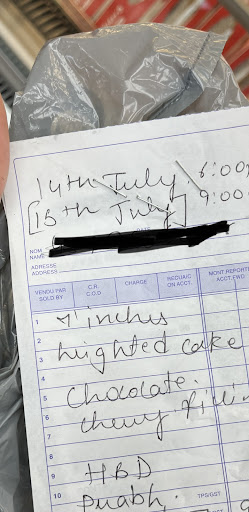 14th July. 6:00
[15th July] 9:00
NOM
NAME
DATE
ADRESSE
ADDRESS
VENDU PAR
SOLD BY
C.R.
C.O.D
CHARGE
REDUAC/
ON ACCT.
MONT. REPORTÉ
ACCT. FWD
1 7 inches
2
3 heighted cake
4
5 chocolate.
6 cherry filli
7
8
9 HBD
10 Prabh.
TPS/GST